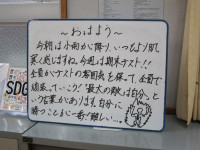 ～おはよう～
今朝は小雨が降り、いつもより肌
寒く感じますね。今週は期末テスト!!
全員がテストの雰囲気を保って、全員で
頑張っていこう!"最大の敵は自分"と
いう言葉があります。自分に
勝つことが一番難しい…。
SDG